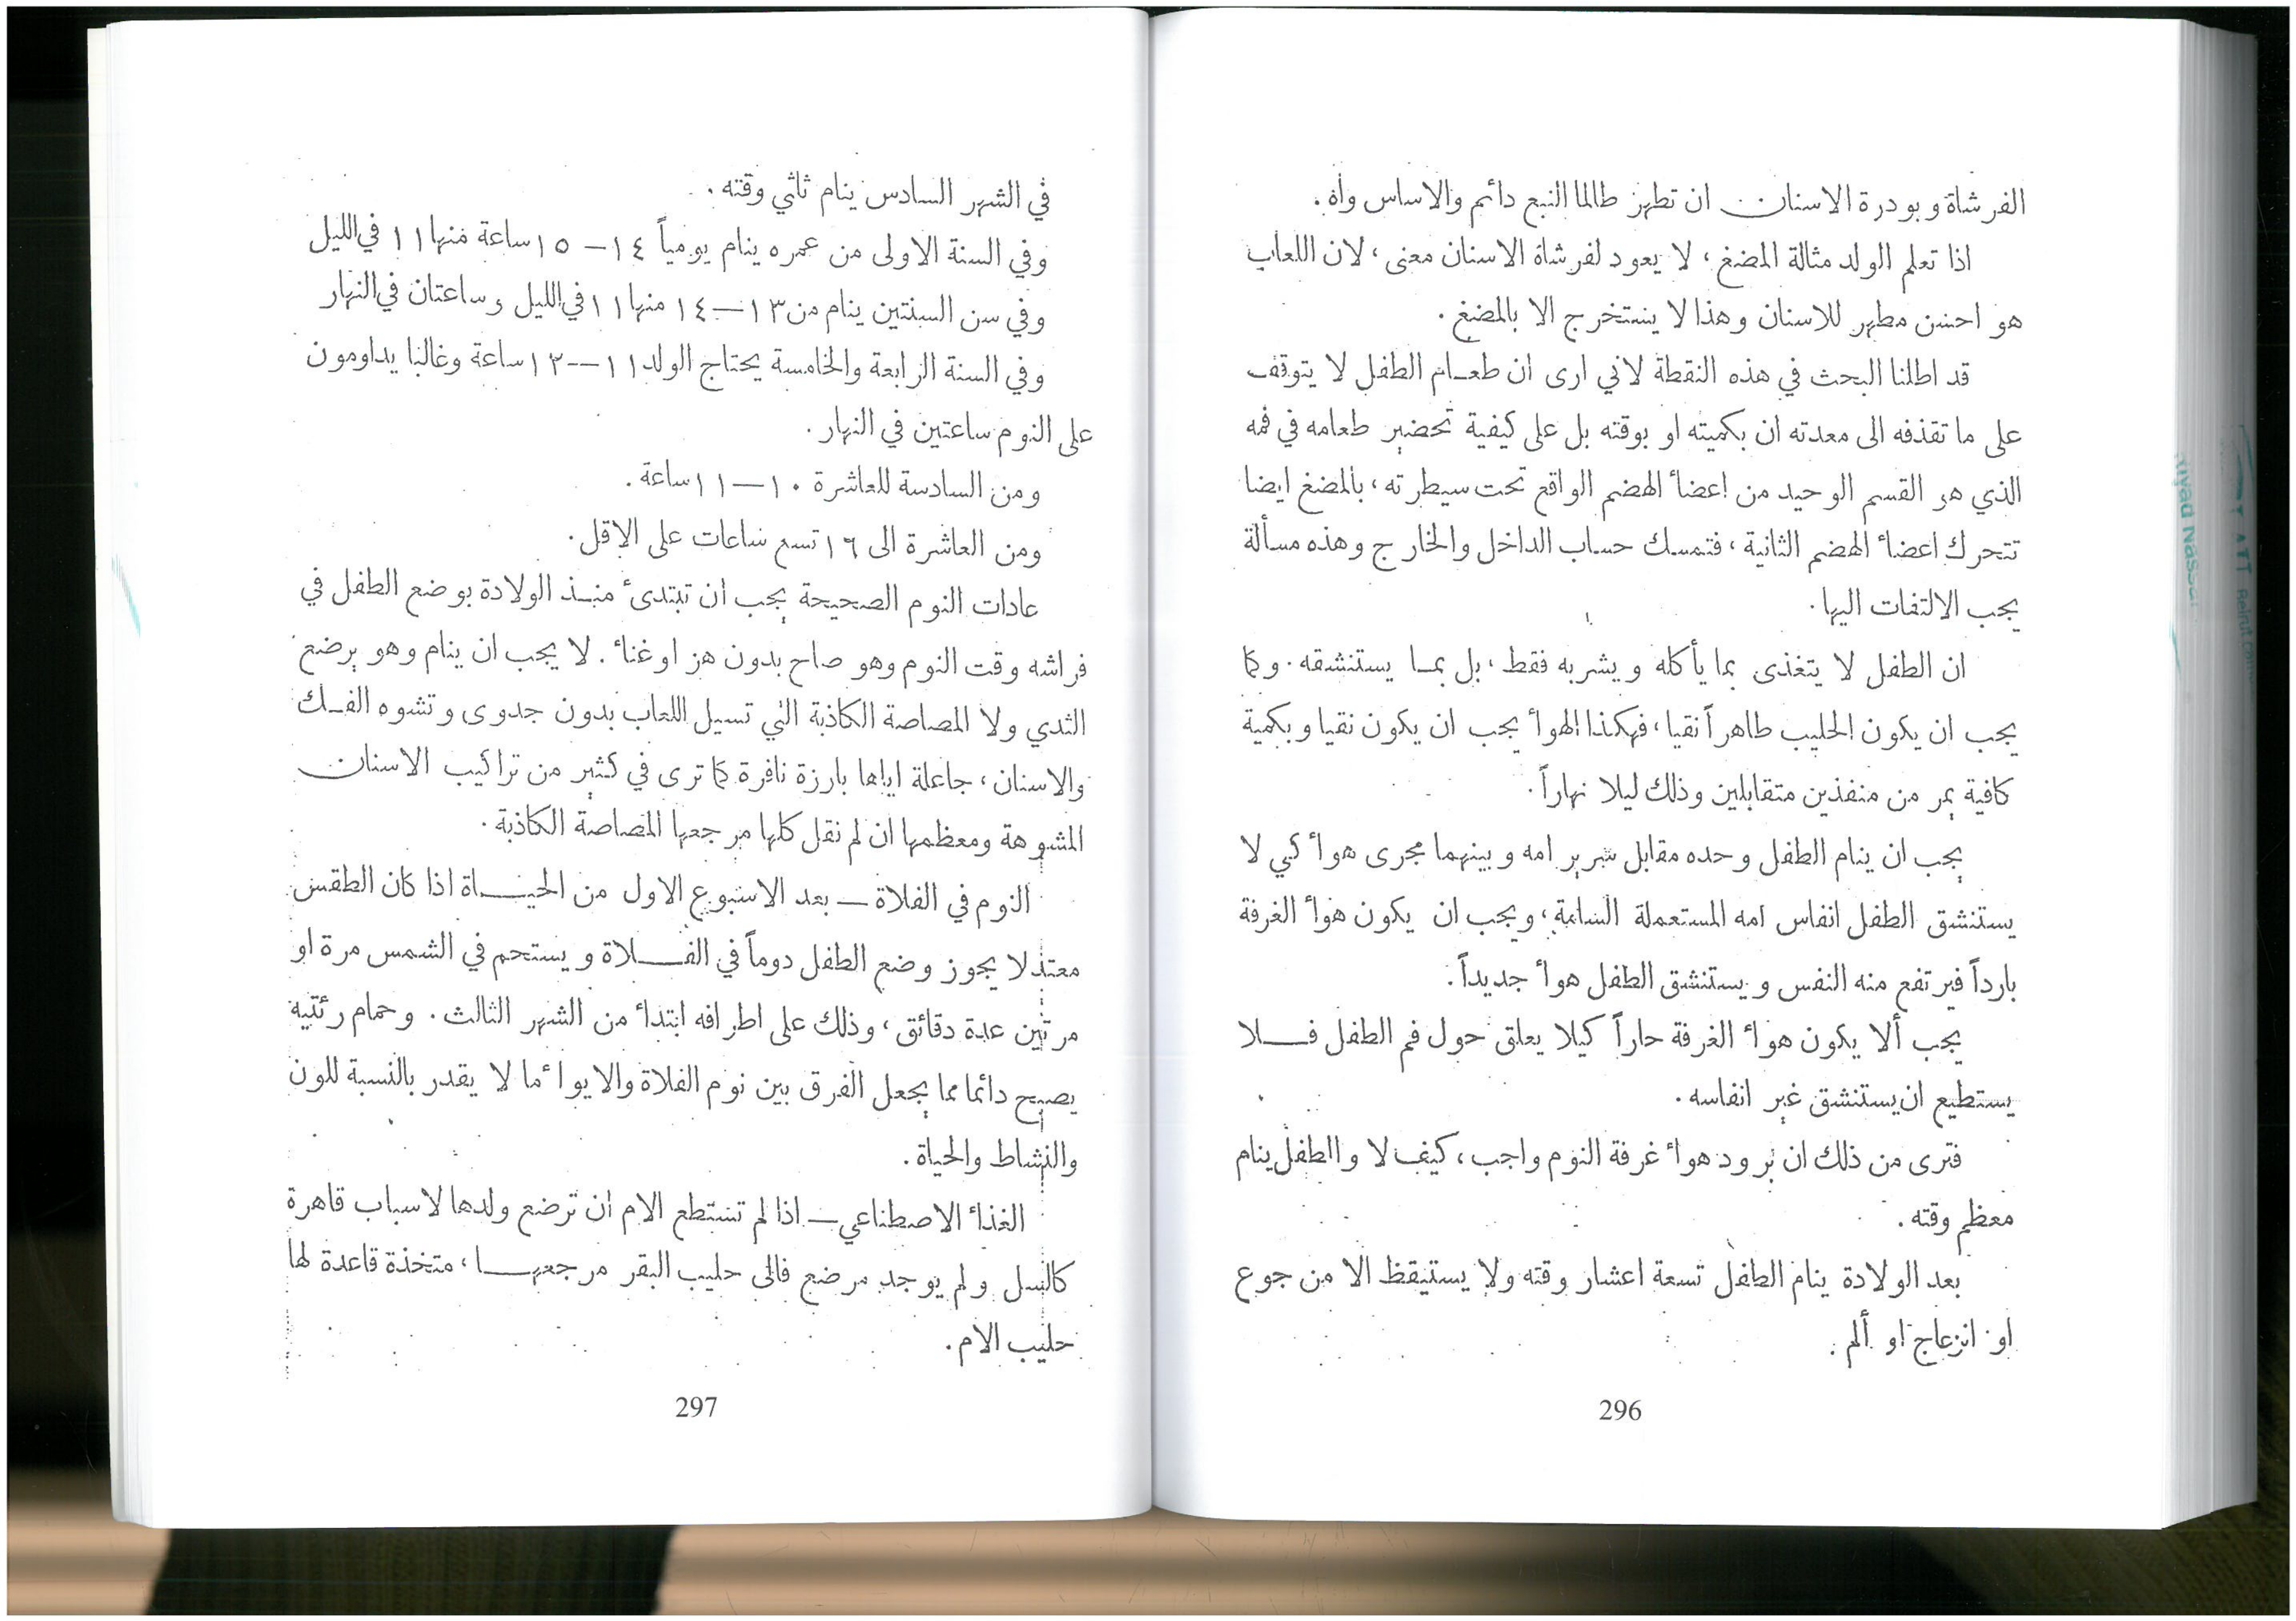 الفرشاة وبودرة الاسنان ان تطهر طالما النبع دائم والاساس واه.
اذا تعلم الولد مثالة المضغ، لا يعود لفرشاة الاسنان معنى، لان اللعاب
هو احسن مطهر للاسنان وهذا لا يستخرج الا بالمضغ.
قد اطلنا البحث في هذه النقطة لاني ارى ان طعام الطفل لا يتوقف
على ما تقذفه الى معدته ان بكميته او بوقته بل على كيفية تحضير طعامه في فمه
الذي هو القسم الوحيد من اعضاء الهضم الواقع تحت سيطرته، بالمضغ ايضا
تتحرك اعضاء الهضم الثانية، فتمسك حساب الداخل والخارج وهذه مسألة
يجب الالتفات اليها.
ان الطفل لا يتغذى بما يأكله ويشربه فقط، بل بما يستنشقه. وكما
يجب ان يكون الحليب طاهراً نقيا، فهكذا الهواء يجب ان يكون نقيا وبكمية
كافية يمر من منفذين متقابلين وذلك ليلا نهاراً.
يجب ان ينام الطفل وحده مقابل سرير امه وبينهما مجرى هواء كي لا
يستنشق الطفل انفاس امه المستعملة السامة، ويجب ان يكون هواء الغرفة
بارداً فيرتفع منه النفس ويستنشق الطفل هواء جديداً.
يجب ألا يكون هواء الغرفة حاراً كيلا يعلق حول فم الطفل فلا
يستطيع ان يستنشق غير انفاسه.
فترى من ذلك ان برود هواء غرفة النوم واجب، كيف لا والطفل ينام
معظم وقته.
بعد الولادة ينام الطفل تسعة اعشار وقته ولا يستيقظ الا من جوع
او انزعاج او ألم.
296
في الشهر السادس ينام ثلثي وقته.
وفي السنة الاولى من عمره ينام يومياً ١٤ — ١٥ ساعة منها ١١ في الليل
وفي سن السنتين ينام من ١٣ — ١٤ منها ١١ في الليل وساعتان في النهار
وفي السنة الرابعة والخامسة يحتاج الولد ١١ — ١٢ ساعة وغالبا يداومون
على النوم ساعتين في النهار.
ومن السادسة للعاشرة ١٠ — ١١ ساعة.
ومن العاشرة الى ١٦ تسع ساعات على الاقل.
عادات النوم الصحيحة يجب ان تبتدئ منذ الولادة بوضع الطفل في
فراشه وقت النوم وهو صاح بدون هز او غناء. لا يجب ان ينام وهو يرضع
الثدي ولا المصاصة الكاذبة التي تسيل اللعاب بدون جدوى وتشوه الفك
والاسنان، جاعلة اياها بارزة نافرة كما ترى في كثير من تراكيب الاسنان
المشوهة ومعظمها ان لم نقل كلها مرجعها المصاصة الكاذبة.
النوم في الفلاة — بعد الاسبوع الاول من الحياة اذا كان الطقس
معتدلا يجوز وضع الطفل دوماً في الفلاة ويستحم في الشمس مرة او
مرتين عدة دقائق، وذلك على اطرافه ابتداء من الشهر الثالث. وحمام رئتيه
يصبح دائما مما يجعل الفرق بين نوم الفلاة والايواء مما لا يقدر بالنسبة للون
والنشاط والحياة.
الغذاء الاصطناعي — اذا لم تستطع الام ان ترضع ولدها لاسباب قاهرة
كالسل ولم يوجد مرضع فالى حليب البقر مرجعها، متخذة قاعدة لها
حليب الام.
297